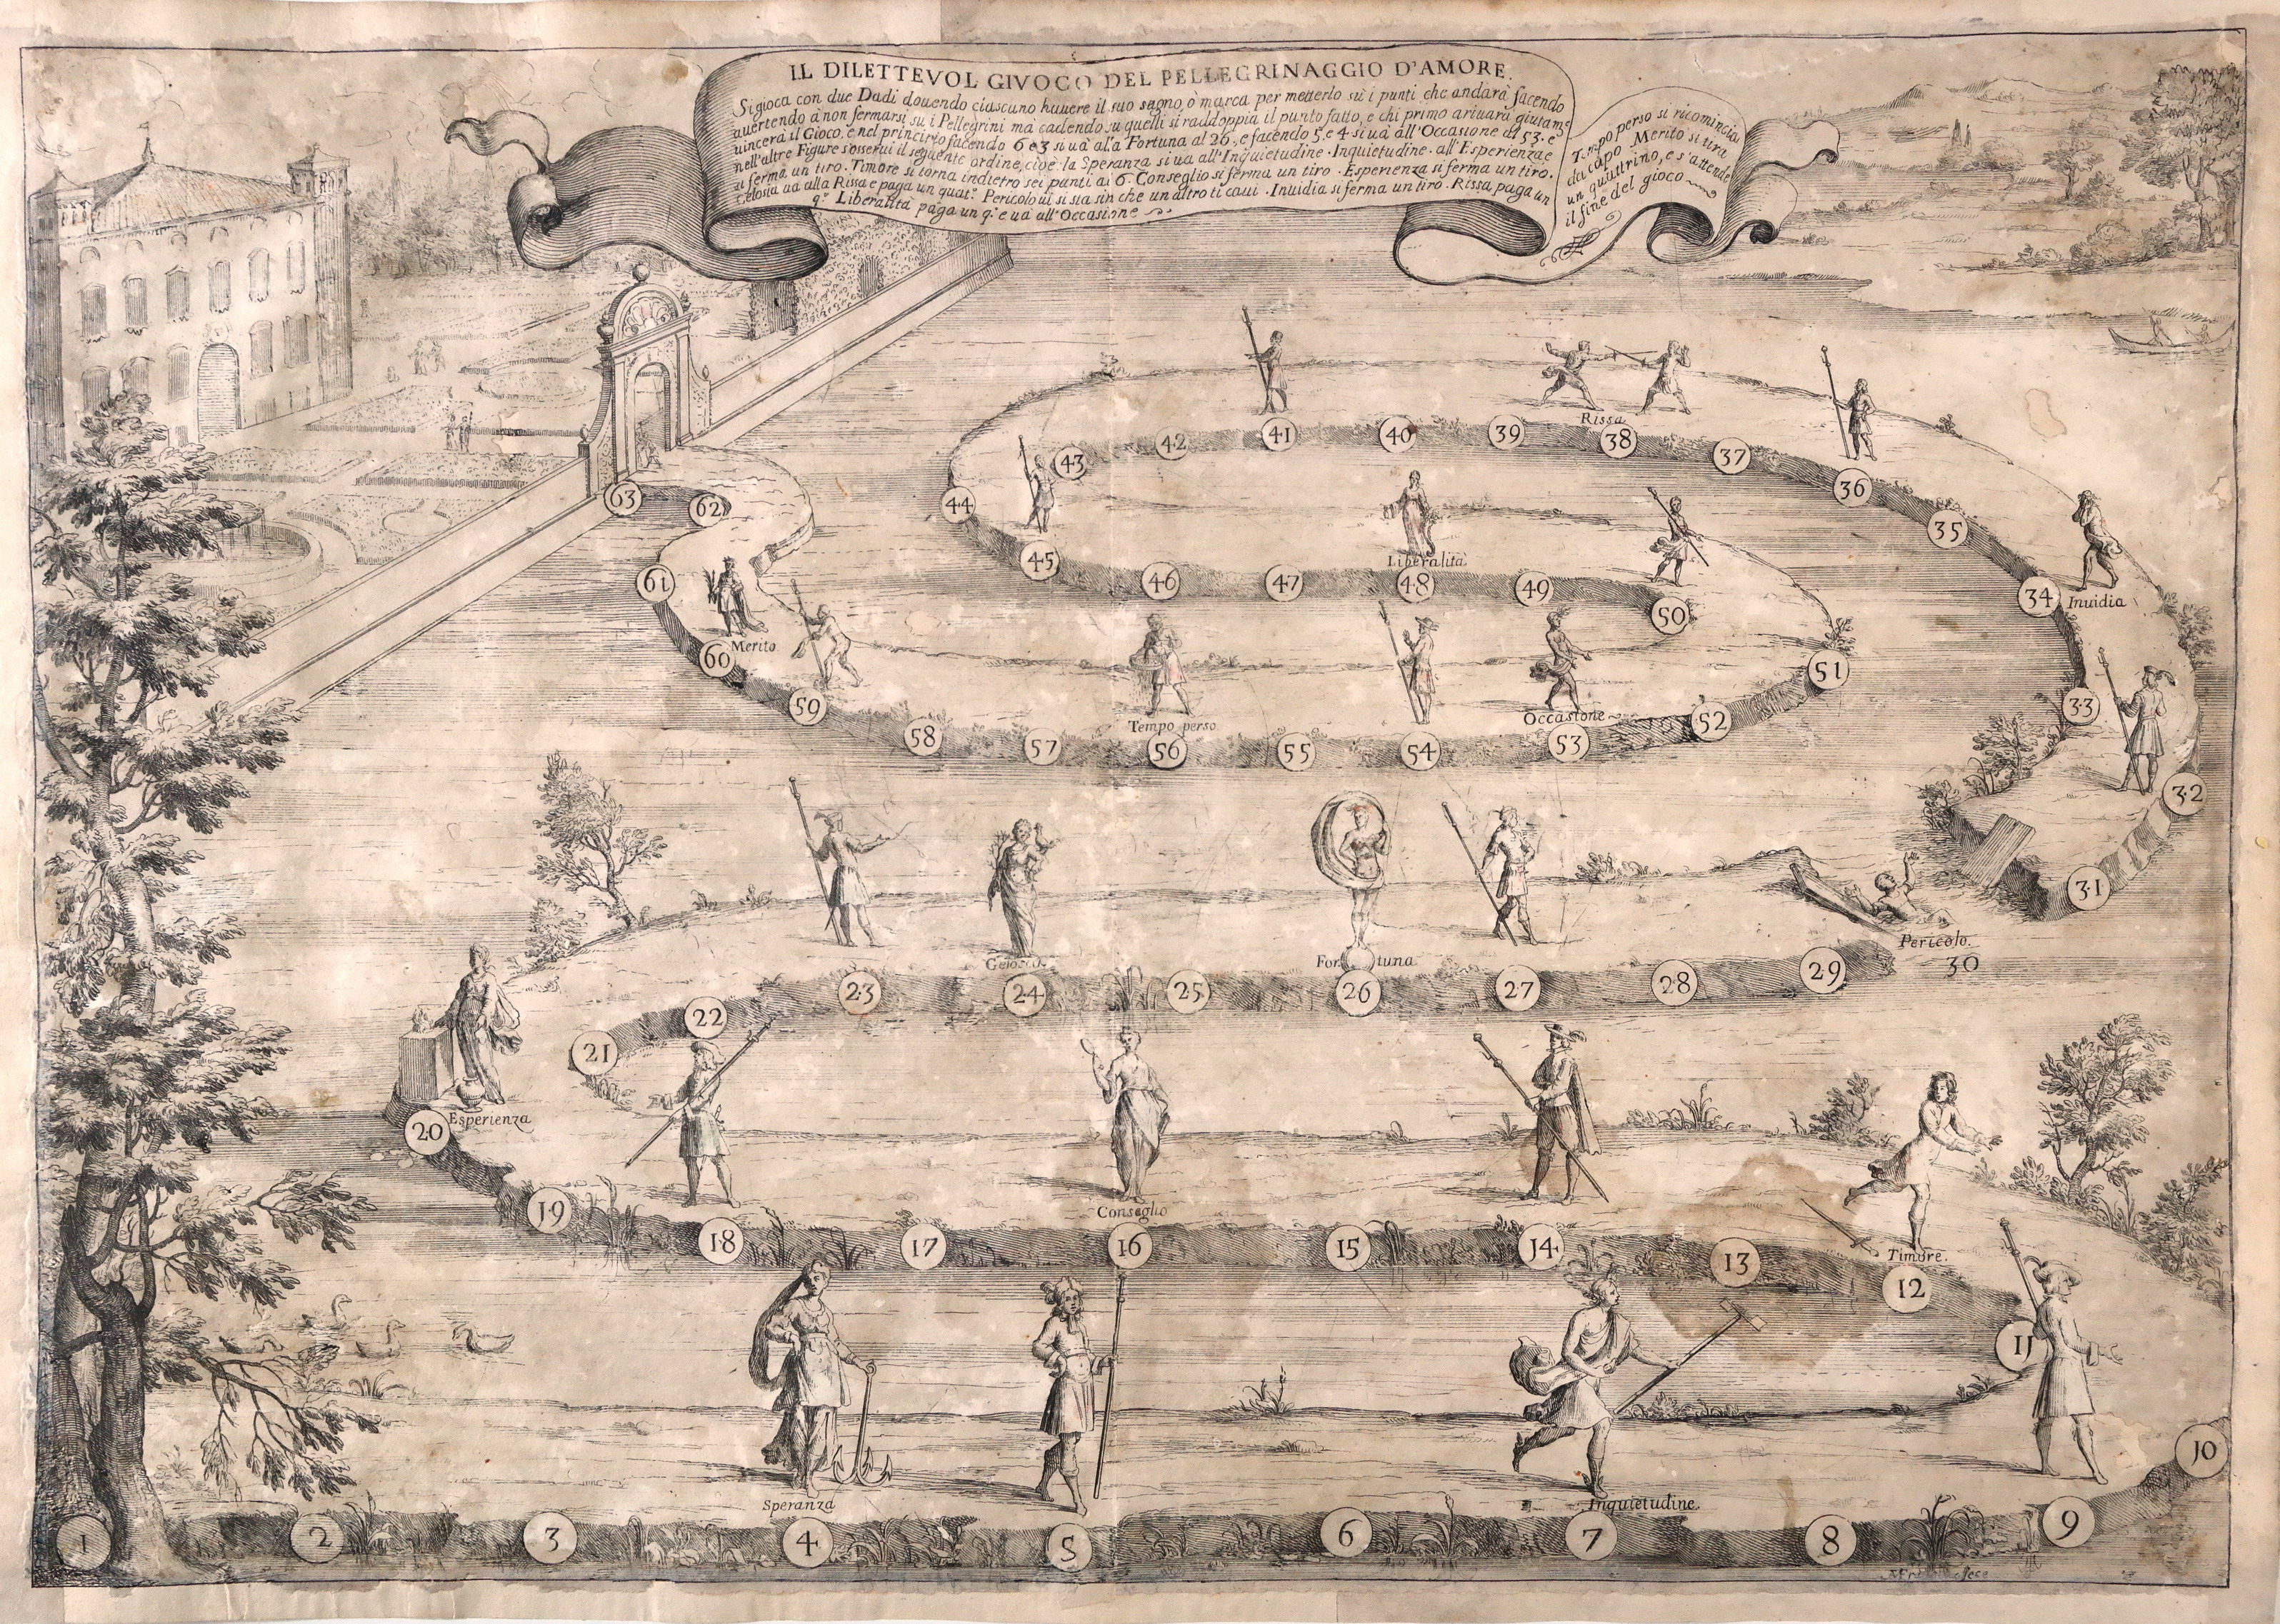 IL DILETTEVOL GIVOCO DEL PELLEGRINAGGIO D'AMORE.
Si gioca con due Dadi douendo ciascuno hauere il suo segno, ò marca per metterlo sù i punti che andarà facendo
auertendo à non fermarsi su i Pellegrini mà cadendo su quelli si raddoppia il punto fatto, e chi primo ariuarà
uincerà il Gioco, e nel principio facendo 6 e 3 si uà alla Fortuna al 26, e facendo 5 e 4 si uà all'Occasione al 53. e
nell'altre Figure s'osserui il seguente ordine, cioè la Speranza si ua all'Inquietudine. Inquietudine. all'Esperienza e
ui ferma un tiro. Timore si torna indietro sei punti ai 6. Conseglio si ferma un tiro. Esperienza si ferma un tiro.
Gelosia uà alla Rissa e paga un quat.º Pericolo ui si sta sin che un altro ti caui. Inuidia si ferma un tiro. Rissa, paga un
q.º Liberalità paga un q.º e uà all'Occasione
Tempo perso si ricomincia
da capo. Merito si tira
un quatrino, e s'attende
il fine del gioco
41
Rissa
43
42
40
39
38
37
36
63
62
44
35
45
Liberalità
61
46
47
48
49
50
34
Inuidia
Merito
60
51
59
Tempo perso
Occasione
33
58
57
56
55
54
53
52
32
31
Pericolo.
30
Gelosia
Fortuna
29
23
24
25
26
27
28
22
21
Esperienza
20
Conseglio
19
18
17
16
15
14
13
Timore.
12
11
10
Speranza
Inquietudine
1
2
3
4
5
6
7
8
9